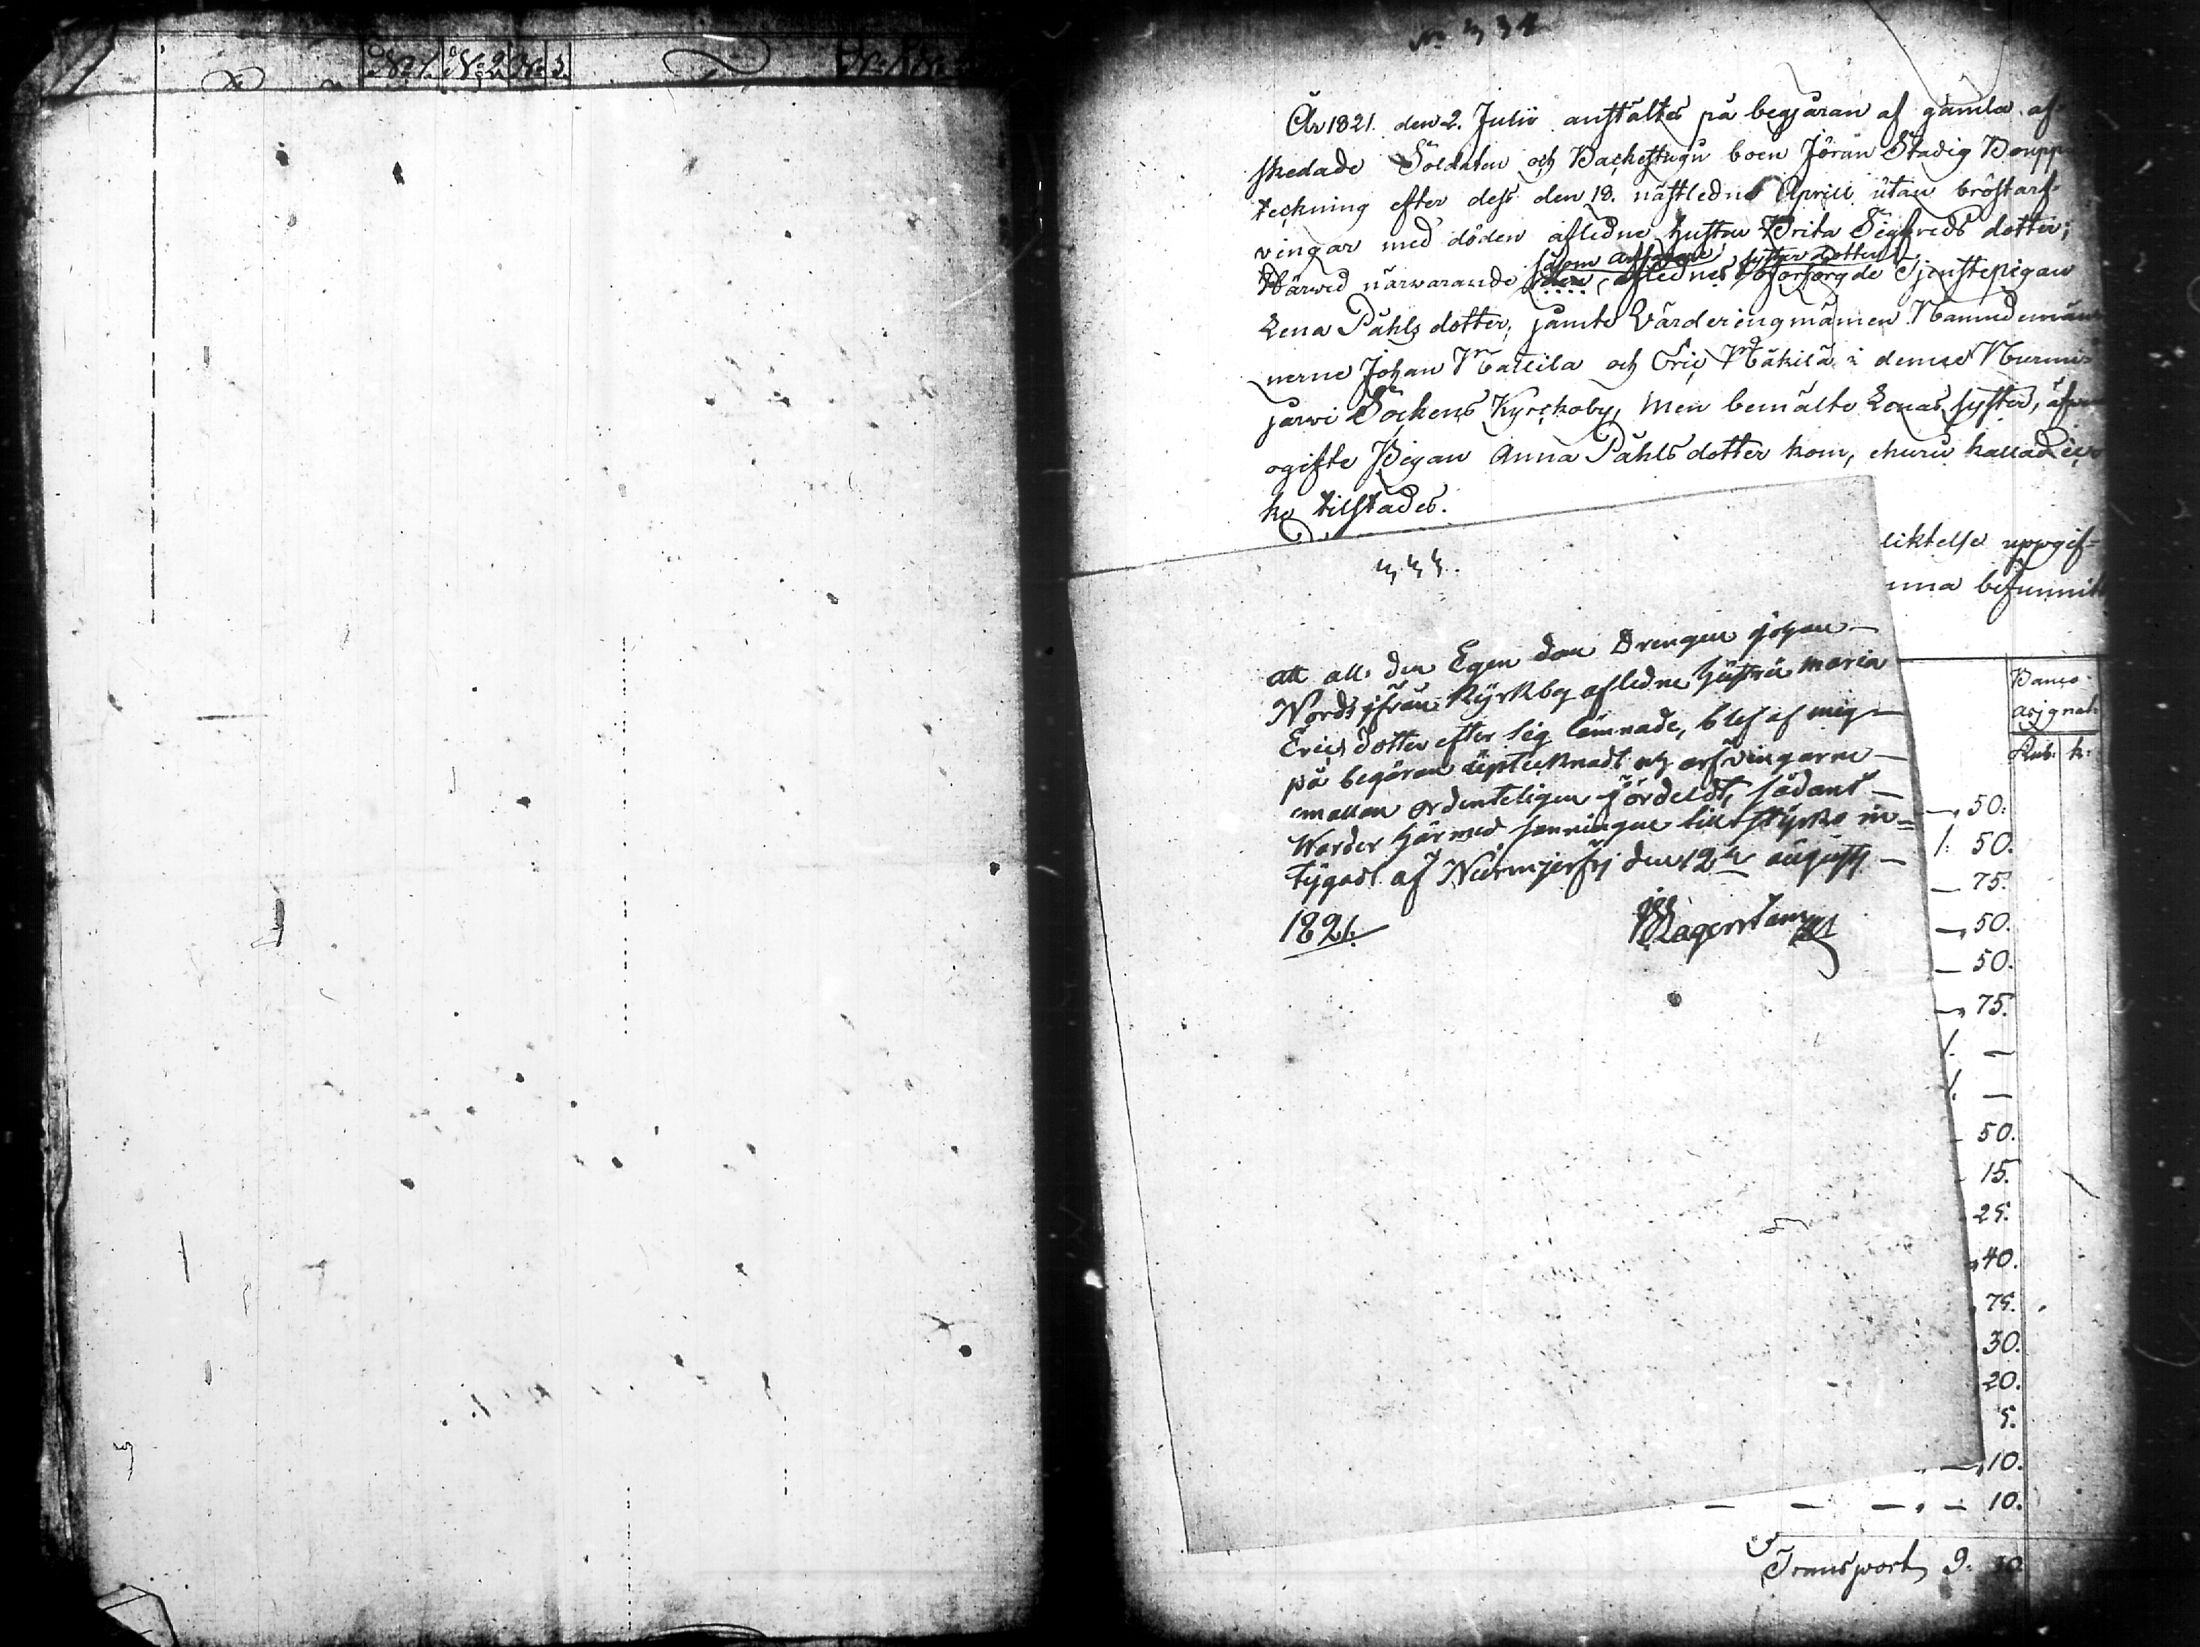 No 1. No 2. No 3.
334
År 1821 den 2. Julii anstältes på begjäran af gamla af-
skedade Soldaten och Backstugu boen Jöran Stadig Boupp
teckning efter dess den 18. nästledne Aprill utan bröstarf-
vingar med döden afledne hustru Brita Sigfreds dotter;
såsom arfvinge syster dotter
Härvid närvarande den aflednes oförsörgde Tjenstepigan
Lena Påhls dotter, jämte Värderingmännen Nämndemän-
nerne Johan Mattila och Eric Mäkilä i denne Nurmi-
järvi Sockens Kyrckoby, Men bemälte Lenas syster, äfven
ogifte Pigan Anna Påhls dotter kom, ehuru kallad ic
ke tilstädes.
liktelse uppgif-
nna befunnit
333.
att all den Egendom Drengen Johan
Nords ifrån Kyrkby afledne hustru Maria
Erics dotter efter sig lämnade, blef af mig
på begäran uptecknadt och arfvingarne
emellan ordenteligen fördeldt, sådant
Warder härmed sanningen till styrko in-
tygadt af Nurmjerfvj den 12te augusti
1821.
Lagerstam
Banco
asignat:
Rub: k:
50.
1. 50.
75.
50.
50.
75.
1. —
1. —
50.
15.
25.
40.
75.
30.
20.
5.
10.
10.
Transport 9.